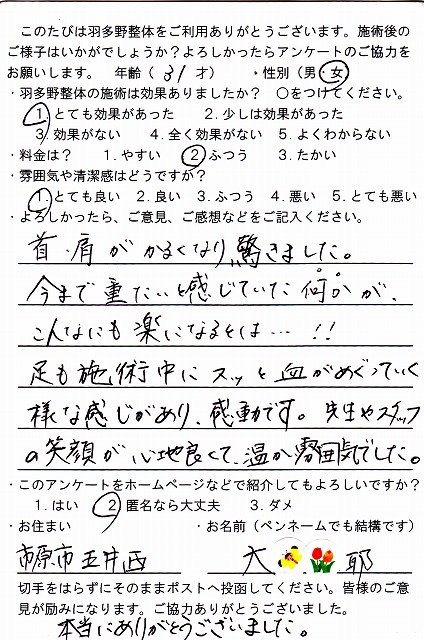 このたびは羽多野整体をご利用ありがとうございます。施術後の
ご様子はいかがでしょうか？よろしかったらアンケートのご協力を
お願いします。 年齢（ 31 才） ・性別（男・女）
・羽多野整体の施術は効果ありましたか？ ○をつけてください。
1 とても効果があった 2. 少しは効果があった
3. 効果がない 4. 全く効果がない 5. よくわからない
・料金は？ 1. やすい 2 ふつう 3. たかい
・雰囲気や清潔感はどうですか？
1 とても良い 2. 良い 3. ふつう 4. 悪い 5. とても悪い
・よろしかったら、ご意見、ご感想などをご記入ください。
首・肩がかるくなり、驚きました。
今まで重たいと感じていた何かが、
こんなにも楽になるとは… !!
足も施術中にスッと血がめぐっていく
様な感じがあり、感動です。先生やスタッフ
の笑顔が心地良くて、温か雰囲気でした。
・このアンケートをホームページなどで紹介してもよろしいですか？
1. はい 2 匿名なら大丈夫 3. ダメ
・お住まい ・お名前（ペンネームでも結構です）
市原市五井西 大 耶
切手をはらずにそのままポストへ投函してください。皆様のご意
見が励みになります。ご協力ありがとうございました。
本当にありがとうございました。